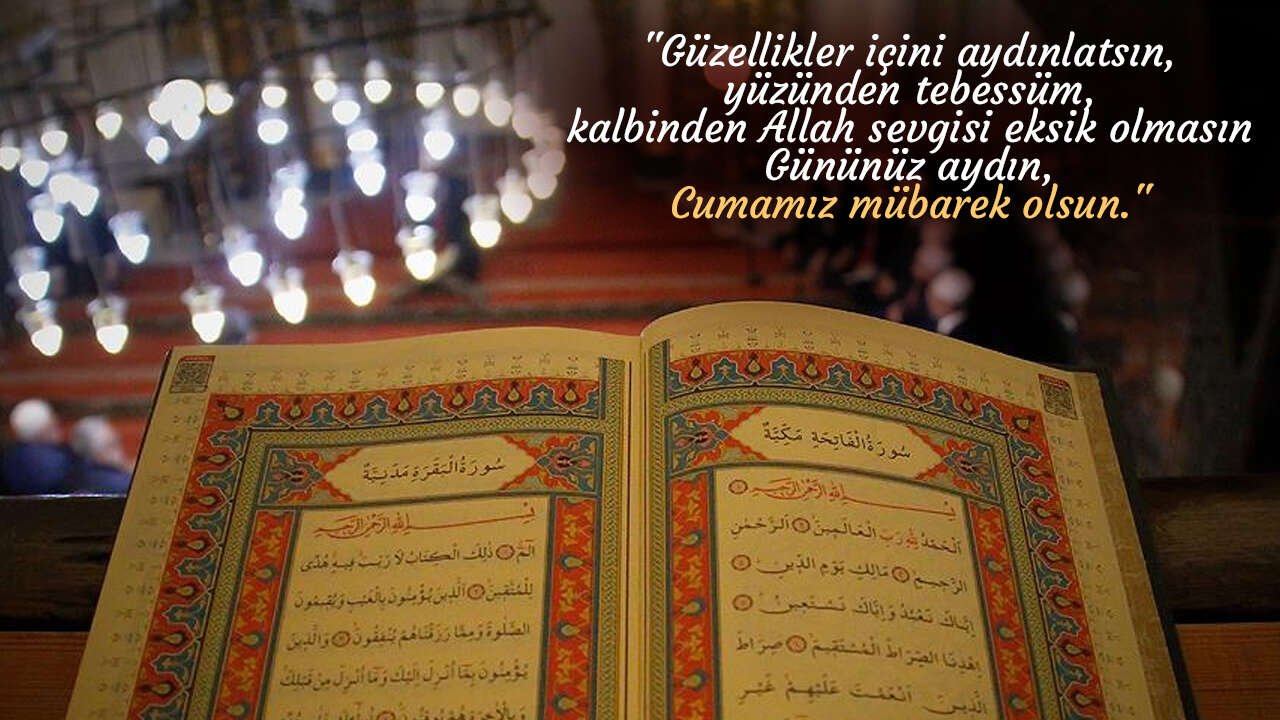 "Güzellikler içini aydınlatsın,
yüzünden tebessüm,
kalbinden Allah sevgisi eksik olmasın
Gününüz aydın,
Cumamız mübarek olsun."
سُورَةُ الْفَاتِحَةِ مَكِّيَّةٌ
بِسْمِ اللّٰهِ الرَّحْمٰنِ الرَّحِيمِ
اَلْحَمْدُ لِلّٰهِ رَبِّ الْعَالَمِينَ اَلرَّحْمٰنِ
الرَّحِيمِ مَالِكِ يَوْمِ الدِّينِ
اِيَّاكَ نَعْبُدُ وَاِيَّاكَ نَسْتَعِينُ
اِهْدِنَا الصِّرَاطَ الْمُسْتَقِيمَ صِرَاطَ
الَّذِينَ اَنْعَمْتَ عَلَيْهِمْ غَيْرِ
سُورَةُ الْبَقَرَةِ مَدَنِيَّةٌ
بِسْمِ اللّٰهِ الرَّحْمٰنِ الرَّحِيمِ
الٓمٓ ذٰلِكَ الْكِتَابُ لَا رَيْبَ فِيهِ هُدًى
لِلْمُتَّقِينَ اَلَّذِينَ يُؤْمِنُونَ بِالْغَيْبِ وَيُقِيمُونَ
الصَّلٰوةَ وَمِمَّا رَزَقْنَاهُمْ يُنْفِقُونَ وَالَّذِينَ
يُؤْمِنُونَ بِمَا اُنْزِلَ اِلَيْكَ وَمَا اُنْزِلَ مِنْ قَبْلِكَ
وَبِالْاٰخِرَةِ هُمْ يُوقِنُونَ